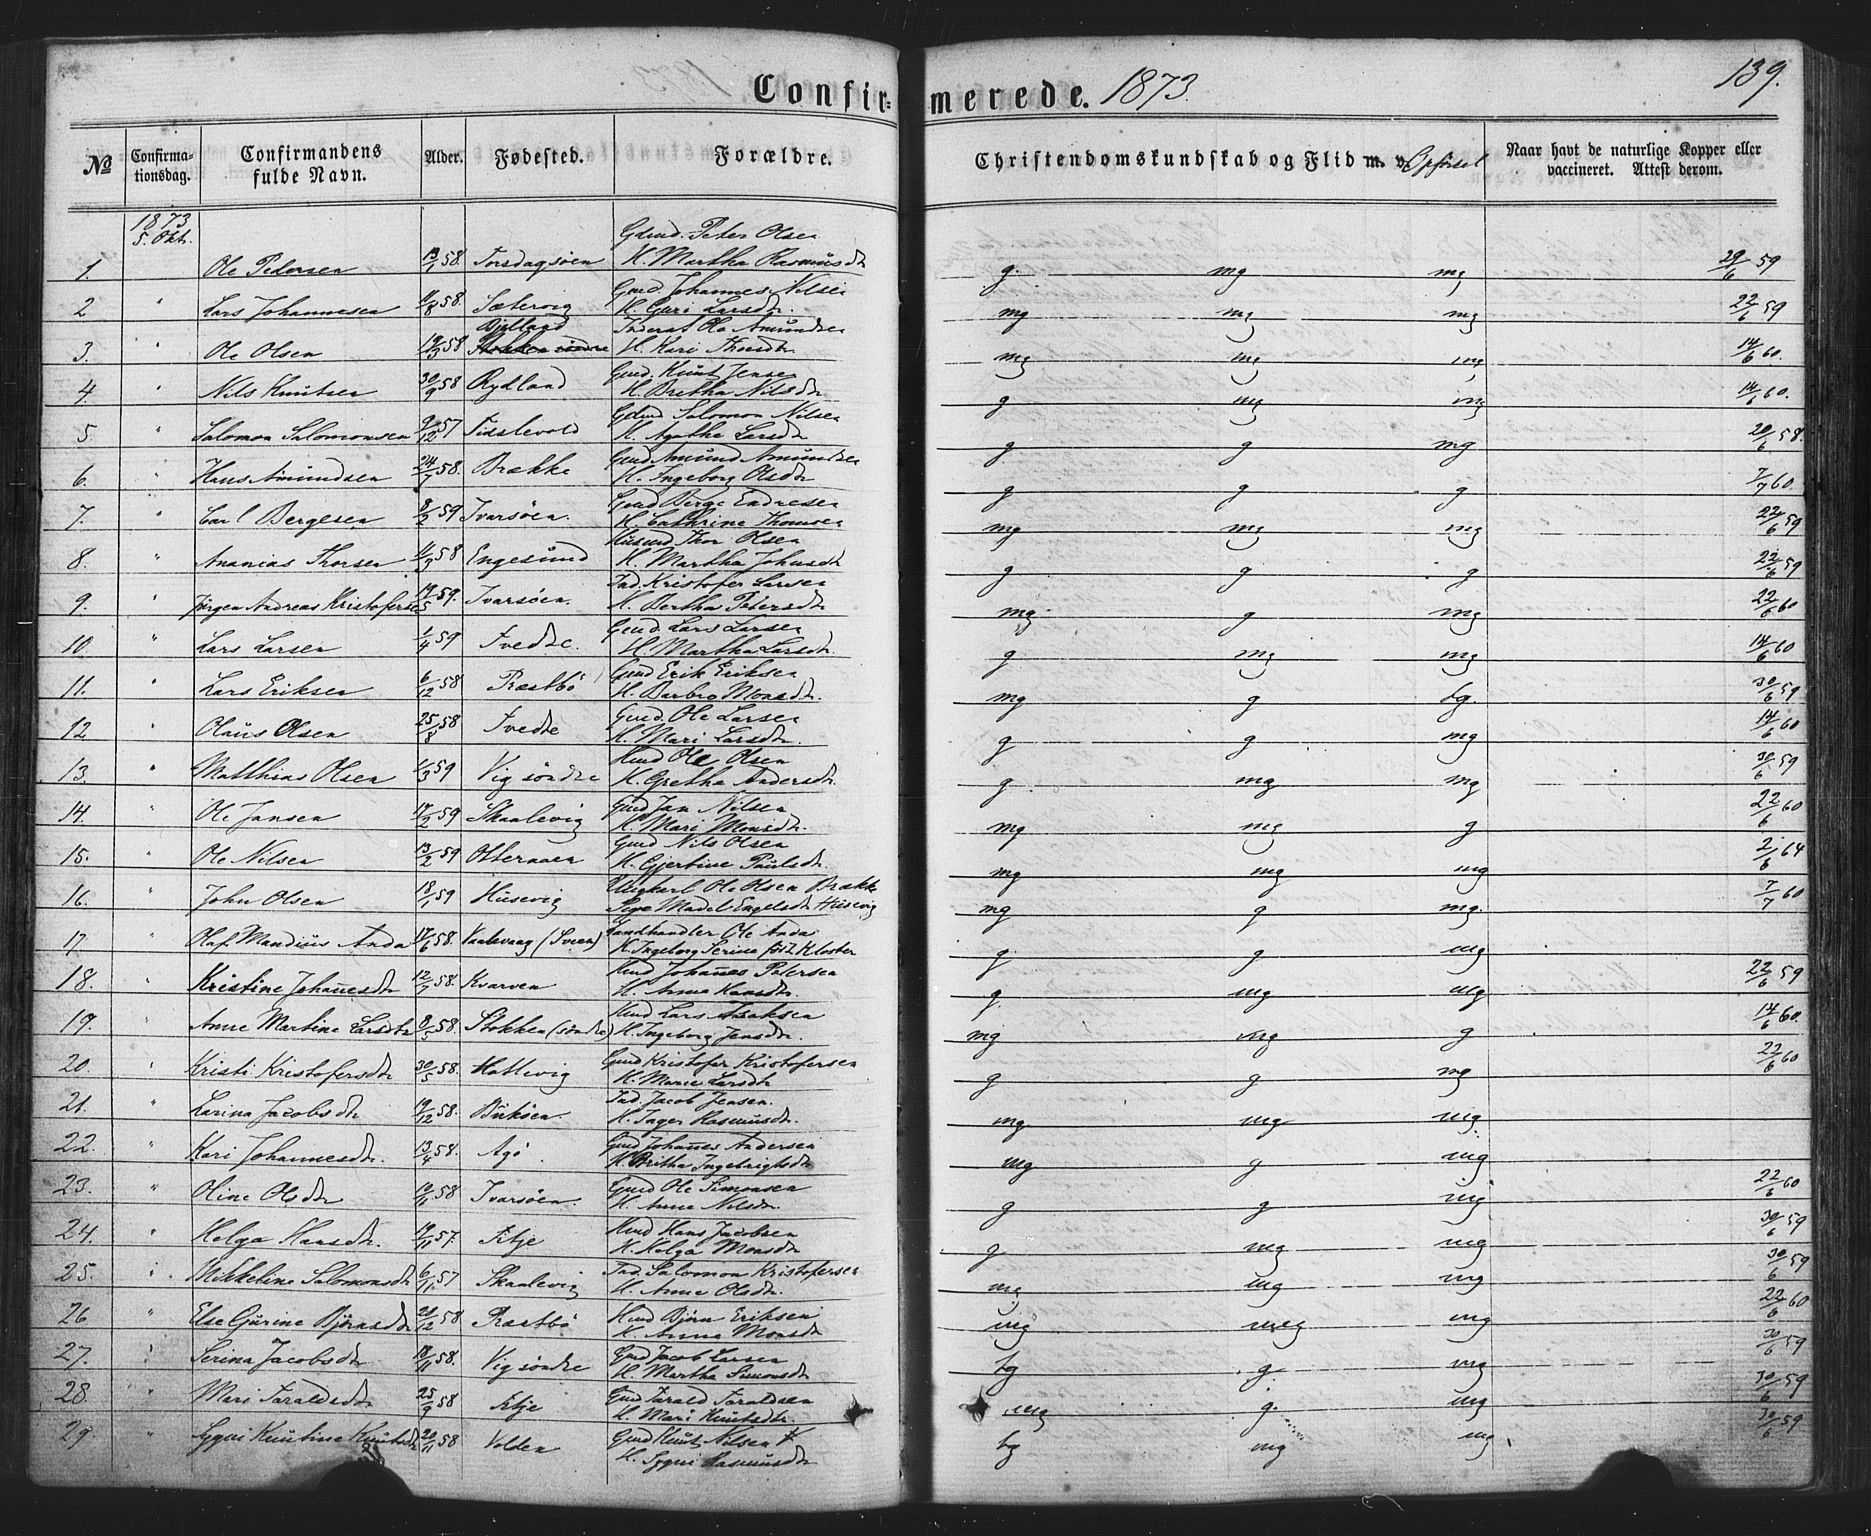 Confir= merede. 1873. 139.
No Confirma=tionsdag. Confirmandens fulde Navn. Alder. Fødested. Forældre. Christendomskundskab og Flid m. v. Opførsel Naar havt de naturlige Kopper eller vaccineret. Attest derom.
1873
5. Okt. Gdmd. Peter Olsen
1. Ole Pedersen 13/1 58. Torsdagsöen H. Martha Rasmusdtr g. mg mg 29/6 59
Gmd. Johannes Nilsen
2 " Lars Johannesen 11/8 58. Sætervig H. Guri Larsdtr. mg mg mg 22/6 59
Bjelland Föderaad Ole Amundsen
3. " Ole Olsen 19/3 58 Stokken söndre H. Kari Thorsdtr mg mg mg 14/6 60.
Gmd. Knut Jensen
4. " Nils Knutsen 30/9 58 Rydland H. Britha Nilsdtr g mg mg 14/6 60.
Gdmd Salomon Nilsen
5 " Salomon Salomonsen 9/12 57 Tislevold H. Agathe Larsdtr g g mg 20/6 58.
Gmd Amund Amundsen
6. " Hans Amundsen 24/7 58. Brække H. Ingeborg Olsdtr g g g 7/7 60.
Gmd Berge Endresen
7. " Carl Bergesen 8/2 59 Ivarsöen. H. Cathrine Thomsen mg mg mg 22/6 59
Husmd Thor Olsen
8. " Ananias Thorsen 11/3 58 Engesund H. Martha Johnsdtr g g g 22/6 59
Ind. Kristofer Larsen
9. " Jørgen Andreas Kristofersen 19/5 59. Ivarsöen. H. Bertha Petersdtr mg. g mg 22/6 60
Gmd. Lars Larsen
10. " Lars Larsen 1/4 59 Tvedte. H. Martha Larsdtr. g mg mg 14/6 60
Gmd Erik Eriksen
11. " Lars Eriksen 6/12 58 Præstbö H. Barbro Monsdtr. mg g tg. 30/6 59
Gmd. Ole Larsen
12. " Olaus Olsen 25/8 58 Tvedte H. Mari Larsdtr. g g mg 14/6 60
Hmd Ole Olsen
13. " Matthias Olsen 1/3 59 Vig söndre H. Gretha Andersdtr. g mg mg 30/6 59
Gmd Jan Nilsen
14. " Ole Jansen 17/2 59 Skaalevig H. Mari Monsdtr. mg mg g 22/6 60
Gmd Nils Olsen
15. " Ole Nilsen 13/2 59 Otteraaen H. Gjertine Paulsdtr. mg mg mg 2/6 64
Ungkarl Ole Olsen Brække
16. " John Olsen 18/1 59 Husevig Pige Madel Engelsdtr Husevig mg g mg. 7/7 60
Landhandler Ole Anda
17 " Olaf Mandius Anda 17/6 58. Vaalevaag (Sveen) H. Ingeborg Serina född Kloster g g mg
Hmd Johannes Petersen
18. " Kristine Johanesdtr 12/7 58. Kvarven H. Anna Hansdtr. g mg mg 22/6 59
Hmd Lars Isaksen
19. " Anne Martine Larsdtr 8/5 58. Stokken (söndre) H. Ingeborg Jensdtr. mg mg g 14/6 60.
Gmd Kristofer Kristofersen
20. " Kristi Kristofersdtr 30/5 58. Hattevig H. Marie Larsdtr g g mg 22/6 60
Ind. Jacob Jensen.
21. " Larina Jacobsdtr 19/12 58. Buköen. H. Inger Rasmusdtr. mg mg mg.
Gmd Johanes Andersen
22. " Kari Johannesdtr. 13/4 58. Agö. H. Britha Ingebrigtsdtr mg g mg
Gmd Ole Simonsen
23. " Oline Olsdtr 10/11 58 Ivarsöen. H. Anne Nilsdtr. g g mg 22/6 60
Hmd Hans Jacobsen
24. " Helga Hansdtr. 19/11 57. Etje H. Helga Monsdtr g mg mg 30/6 59
Ind. Salomon Kristofersen
25. " Mikkeline Salomonsdtr 6/11 57 Skaalevig H. Anne Olsdtr. mg mg mg 30/6 59
Hmd Björn Eriksen
26 " Else Gurine Björnsdtr 20/12 58 Præstbö H. Anna Monsdtr mg meg mg 22/6 60
Gmd Jacob Larsen
27. " Serina Jacobsdtr. 18/11 58. Vig söndre H. Martha Simonsdtr tg g. mg 30/6 59
Gmd Tarald Taraldsen
28. " Mari Taraldsdtr 25/9 58 Etje H. Mari Knutsdtr. mg g. mg 30/6 59
Gmd Knut Nilsen
29. " Sygni Knutine Knutsdtr 20/11 58 Volden H. Sygni Rasmusdtr. tg mg mg 30/6 59